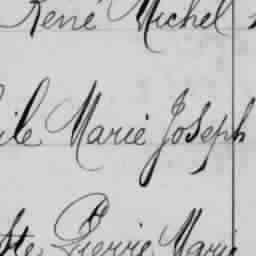 René Michel
ile Marie Joseph
tte Pierre Marie